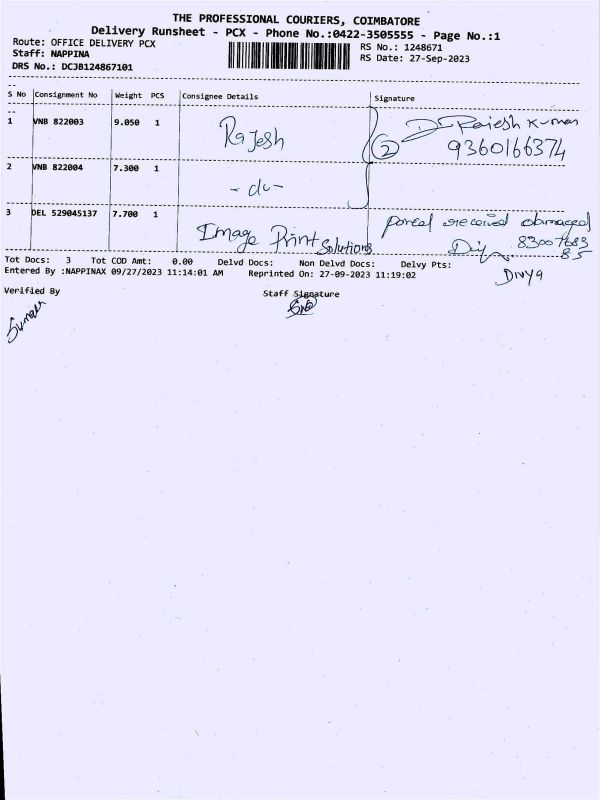 THE PROFESSIONAL COURIERS, COIMBATORE
Delivery Runsheet - PCX - Phone No.:0422-3505555 - Page No.:1
Route: OFFICE DELIVERY PCX
Staff: NAPPINA
DRS No.: DCJB124867101
RS No.: 1248671
RS Date: 27-Sep-2023
S No Consignment No Weight PCS Consignee Details Signature
1 VNB 822003 9.050 1 Rajesh Dr Rajesh Kumar
2 9360166374
2 VNB 822004 7.300 1 - do -
3 DEL 529045137 7.700 1 Image Print Solutions parcel received damaged
83007683
85
Divya
Tot Docs: 3 Tot COD Amt: 0.00 Delvd Docs: Non Delvd Docs: Delvy Pts:
Entered By :NAPPINAX 09/27/2023 11:14:01 AM Reprinted On: 27-09-2023 11:19:02
Verified By Staff Signature